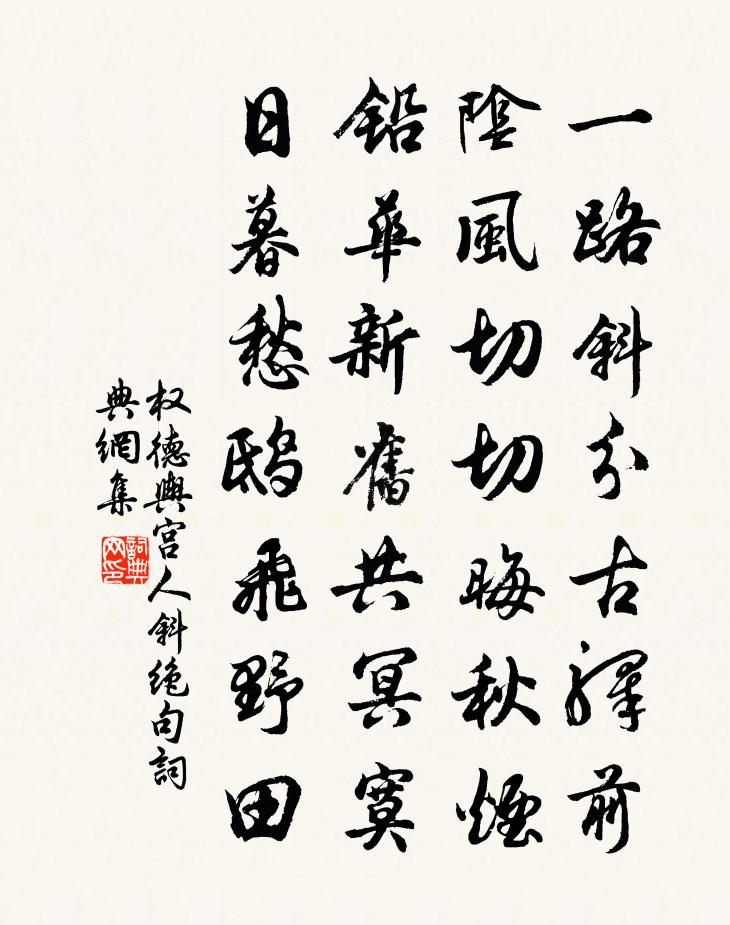 一路斜分古驛前
陰風切切晦秋煙
鉛華新舊共冥寞
日暮愁鴟飛野田
权德輿宫人斜绝句詞
典網集
詞典网印